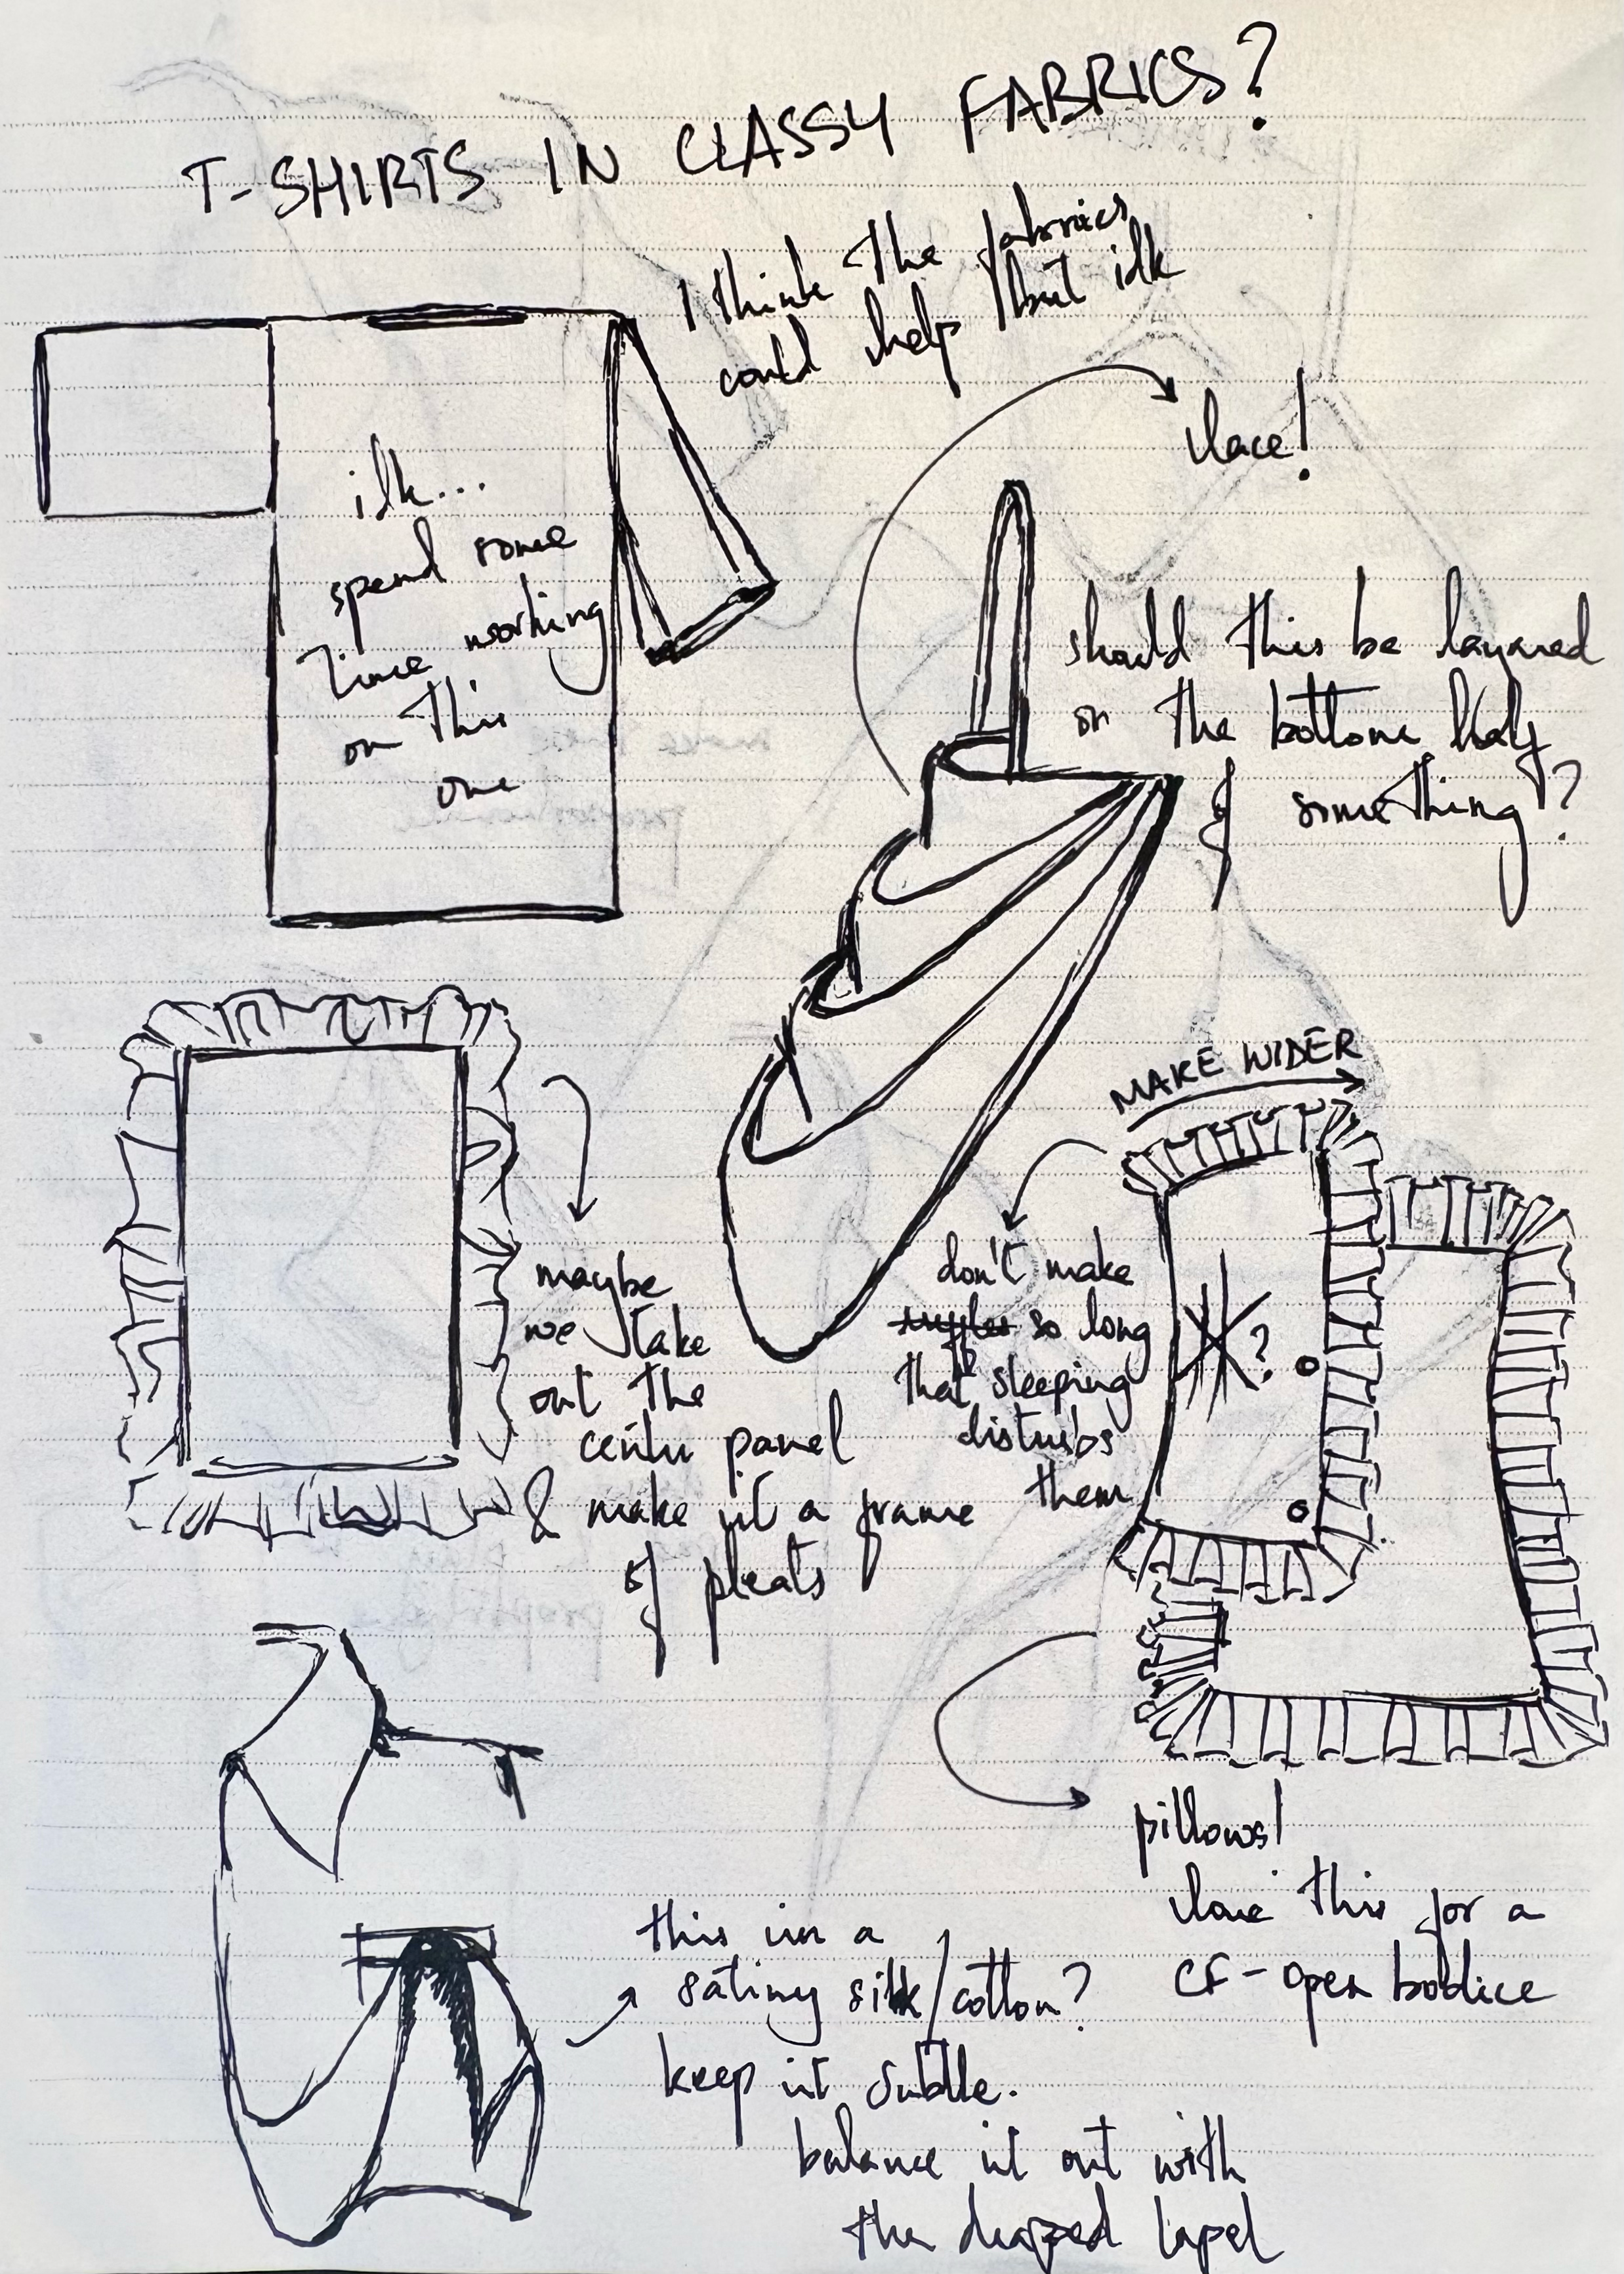 T-SHIRTS IN CLASSY FABRICS?
I think the fabrics
could help but idk
idk...
spend some
time working
on this
one
lace!
should this be layered
on the bottom half
of something?
MAKE WIDER
maybe
we take
out the
center panel
& make it a frame
of pleats
don't make
ruffles so long
that sleeping
disturbs
them
?
pillows!
love this for a
CF-open bodice
this in a
satiny silk/cotton?
keep it subtle.
balance it out with
the draped lapel